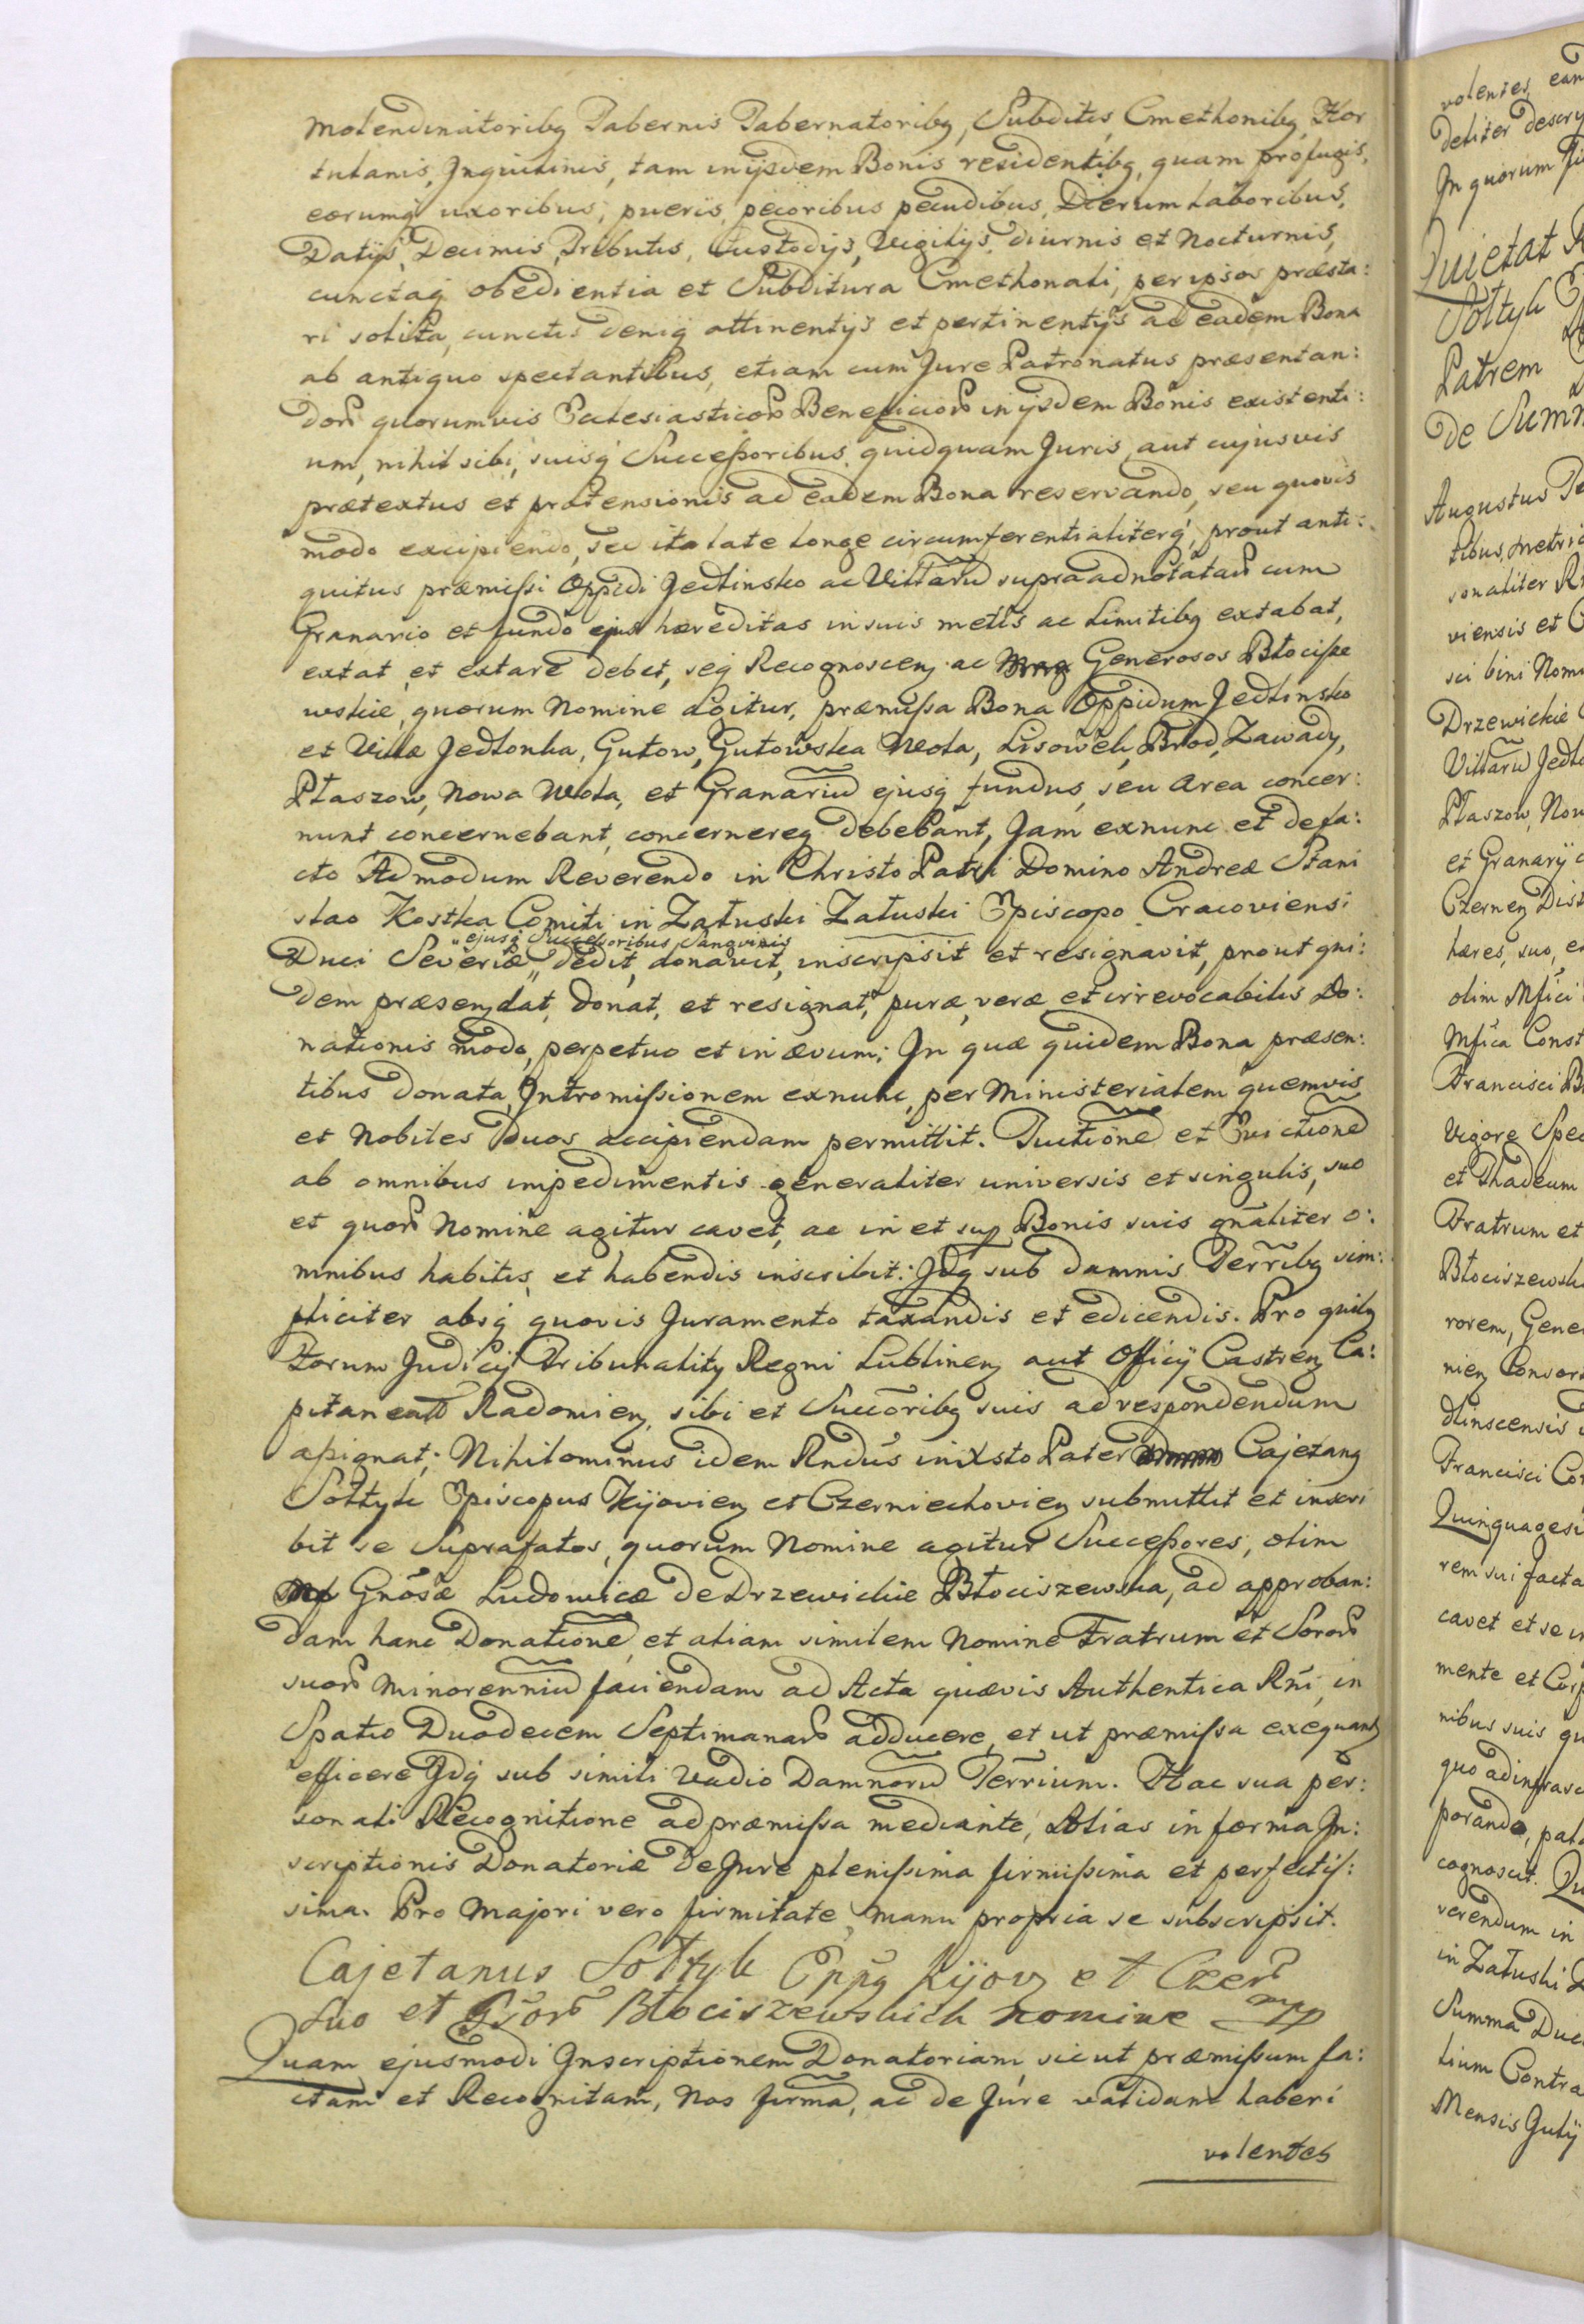 Molendinatoribq Tabernis Tabernatoribq, Subditis, Cmethonibq, Hor
tulanis, Inquilinis, tam inijsdem Bonis residentibq, quam profugis,
eorumq uxoribus, pueris, pecoribus pecudibus, Dierum Laboribus,
Datijs, Decimis, Tributis, Custodijs, Vigilijs, diurnis et Nocturnis,
cunctaq obedientia et Subditura Cmethonali, per ipsos præsta:
ri solita, cunctis deniq attinentijs et pertinentijs ad eadem Bona
ab antiquo spectantibus, etiam cum Jure Patronatus præsentan:
dor quorumvis Ecclesiasticor Beneficior inijsdem Bonis existenti:
um, nihil sibi, suisq Succeſsoribus quidquam Juris, aut cujusvis
prætextus et prætensionis ad eadem Bona reservando, seu quovis
modo excipiendo, sed ita late longe circumferentialiterq, prout anti:
quitus præmiſsi Oppidi Jedlinsko ac Villarũ supra adnotatar cum
Granario et fundo ejus hæreditas in suis metis ac Limitibq extabat,
extat, et extare debet, seq Recognoscenq ac Generosos Błociſze
wskie, quorum Nomine agitur, præmiſsa Bona Oppidum Jedlinsko
et Villæ Jedlonka, Gutow, Gutowska Wola, Lisowek, Brod, Zawady,
Płaszow, Nowa Wola, et Granariũ ejusq fundus, seu Area concer:
nunt concernebant, concernereq debebant, Jam exnunc et defa:
cto Admodum Reverendo in Christo Patri Domino Andreæ Stani
slao Kostka Comiti in Załuski Załuski Episcopo Cracoviensi
„ejusq Succeſsoribus Sanqvinis
Duci Severiæ„ dedit, donavit, inscripsit et resignavit, prout qui:
dem præsenq dat, donat, et resignat, puræ, veræ, et irrevocabilis Do:
nationis modo, perpetuo et in ævum; In quæ quidem Bona præsen:
tibus Donata, Intromiſsionem exnunc, per Ministerialem quemvis
et Nobiles Duos accipiendam permittit. Tuitionẽ et Evictionẽ
ab omnibus impedimentis generaliter universis et singulis, suo
et quor Nomine agitur cavet, ac in et sup Bonis suis gnãliter o:
mnibus habitis, et habendis inscribit: Idq sub damnis Terr̃ibq sim:
pliciter absq quovis Juramento taxandis et edicendis. Pro quibq
Forum Judicij Tribunalitq Regni Lublinenq aut Officij Castrenq Ca:
pitanealt Radomienq, sibi et Succõribq suis ad respondendum
aſsignat; Nihilominus idem Rndus inXsto Pater Cajetanq
Sołtyk Episcopus Kijovienq et Czerniechovienq submittit et inscri
bit se Suprafatos, quorum Nomine agitur Succeſsores, olim
Gnosæ Ludovicæ de Drzewickie Błociszewska, ad approban:
dam hanc Donationẽ, et aliam similem Nomine Fratrum et Soror
suor Minorenniũ faciendam ad Acta quævis Authentica Rñi, in
Spatio Duodecem Septimanar adducere, et ut præmiſsa exequantq
efficere Idq sub simili Vadio Damnorũ Terrium. Hac sua per:
sonali Recognitione ad præmiſsa mediante, Alias in forma In:
scriptionis Donatoriæ de Jure pleniſsima firmiſsima et perfectiſ:
sima. Pro Majori vero firmitate, manu propria se subscripsit.
Cajetanus Sołtyk Eppq Kijovq et Czer
Suo et Gr̃or Błociszewskich nomine mpp
Quam ejusmodi Inscriptionem Donatoriam, sicut præmiſsum fa:
ctam et Recognitam, Nos firmã, ac de Jure validam haberi
volentes
volentes, eam
deliter descry
In quorum fi
Quietat R
Sołtyk E
Patrem
De Summ
Augustus Te
tibus, Metric
sonaliter R
viensis et C
sci bini Nom
Drzewickie
Villarũ Jedlo
Płaszow, Now
et Granarij
Czerneq Dist
hæres, suo, e
olim Mfici
Mfica Const
Francisci B
Vigore Spec
et Thadeum
Fratrum et
Błociszewsk
rorem, Gene
nieq Consor
dlinscensis
Francisci Co
Quinquagesi
rem sui facta
cavet et se i
mente et Corp
nibus suis qu
quo ad infrasc
porando, pala
cognoscit. Qu
verendum in
in Załuski
Summa Duc
lium Contra
Mensis Julij